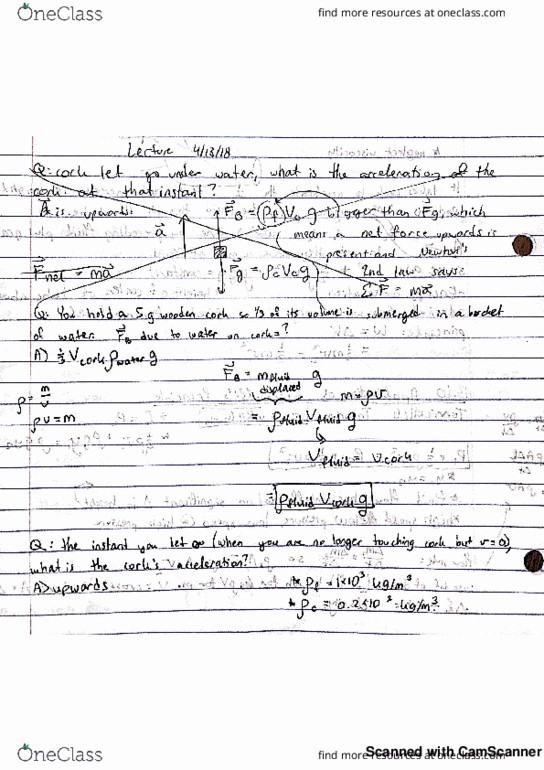 OneClass
find more resources at oneclass.com
Lecture 4/13/18
Q: cork let go under water, what is the acceleration of the
cork at that instant?
A: is upwards
F_B = (ρ_f) V_o g bigger than F_g, which
a
means a net force upwards is
present and Newton's
F_g = ρ_c V_o g
2nd law says
F_net = ma
ΣF = ma
Q: You hold a 5g wooden cork so 1/3 of its volume is submerged in a bucket
of water. F_B due to water on cork = ?
A) 1/3 V_cork ρ_water g
F_B = m_fluid g
displaced
m = ρv
ρ = m/v
ρv = m
= ρ_fluid V_fluid g
V_fluid = V_cork
= ρ_fluid V_cork g
Q: the instant you let go (when you are no longer touching cork but v=0),
what is the cork's acceleration?
A) upwards
* ρ_f = 1×10³ kg/m³
* ρ_c = 0.2×10³ kg/m³
OneClass
find more resources at oneclass.com
Scanned with CamScanner